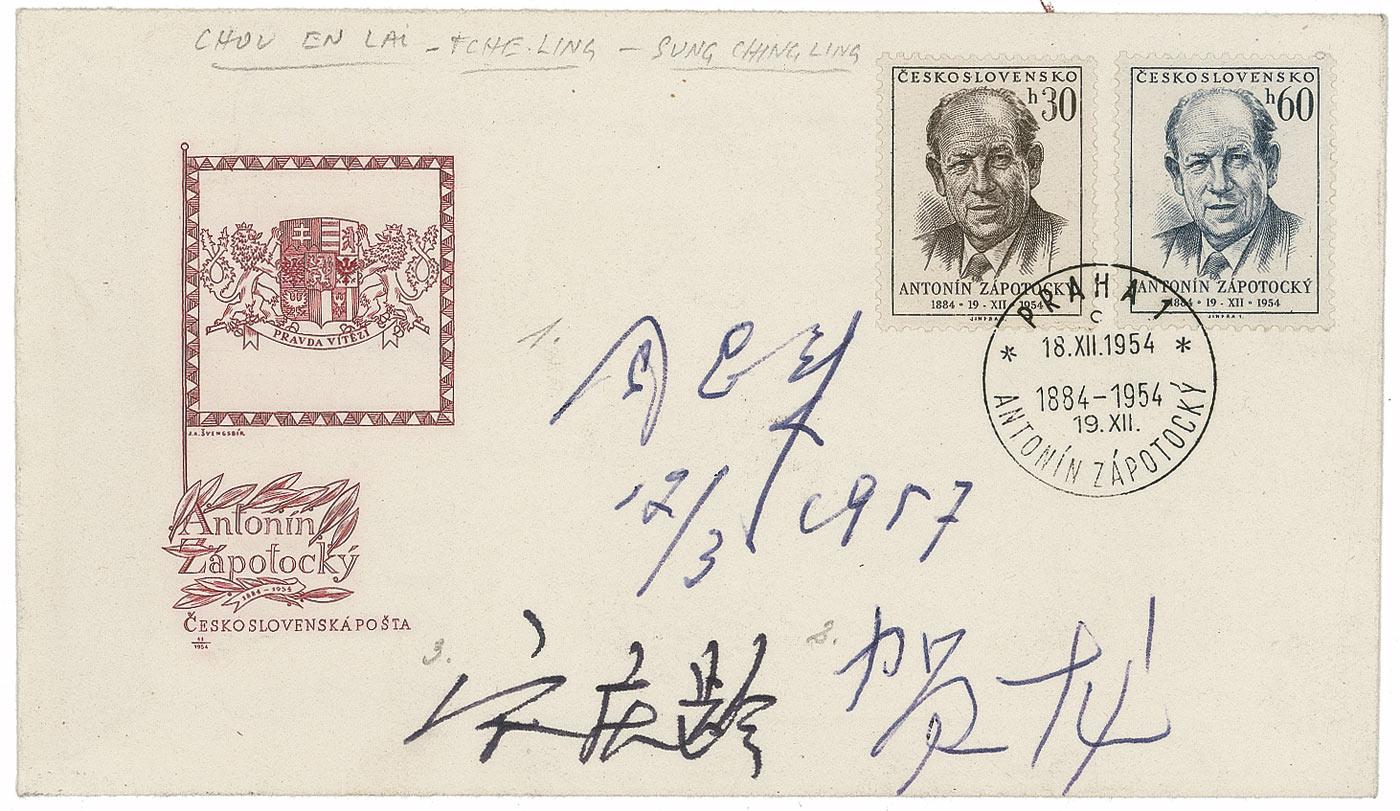 CHOU EN LAI - TCHE·LING - SUNG CHING LING
ČESKOSLOVENSKO
h30
ANTONÍN ZÁPOTOCKÝ
1884 · 19 · XII · 1954
ČESKOSLOVENSKO
h60
ANTONÍN ZÁPOTOCKÝ
1884 · 19 · XII · 1954
PRAHA 1
C
* 18.XII.1954 *
1884-1954
19.XII.
ANTONÍN ZÁPOTOCKÝ
PRAVDA VÍTĚZÍ
J.A. ŠVENGSBÍR
Antonín
Zápotocký
1884-1954
ČESKOSLOVENSKÁ POŠTA
1954
1.
周恩来
12/3 1957
3.
宋庆龄
2.
贺龙